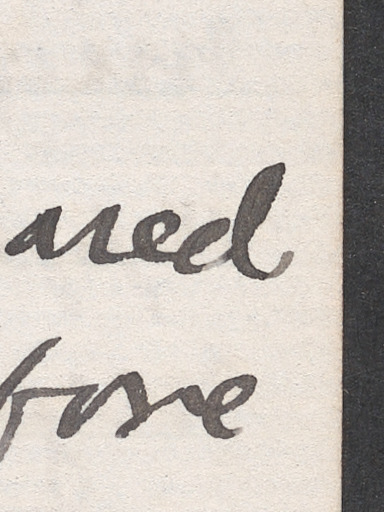 ared
fore